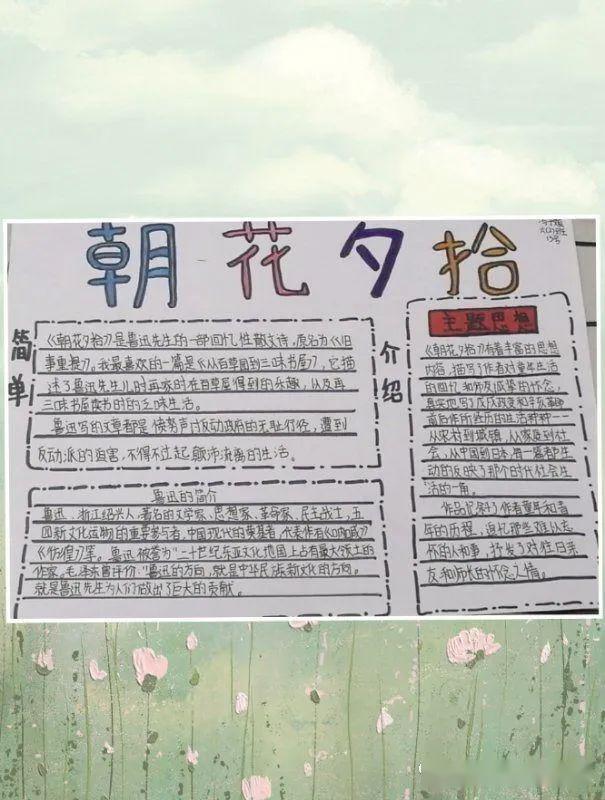 朝花夕拾
简单
《朝花夕拾》是鲁迅先生的一部回忆性散文诗,原名为《旧
事重提》。我最喜欢的一篇是《从百草园到三味书屋》,它描
述了鲁迅先生儿时再家时在百草屋得到的乐趣,以及再
三味书屋读书时的乏味生活。
鲁迅写的文章都是愤怒声讨反动政府的无耻行径,遭到
反动派的迫害,不得不过起颠沛流离的生活。
介绍
鲁迅的简介
鲁迅,浙江绍兴人,著名的文学家、思想家、革命家、民主战士,五
四新文化运动的重要参与者,中国现代的奠基者,代表作有《呐喊》
《彷徨》等。鲁迅被誉为"二十世纪东亚文化地图上占有最大领土的
作家。毛泽东曾评价:"鲁迅的方向,就是中华民族新文化的方向。
就是鲁迅先生为人们做出了巨大的贡献。
主题思想
《朝花夕拾》有着丰富的思想
内容,描写了作者对童年生活
的回忆和师友诚挚的怀念,
真实地写了戊戌政变和辛亥革命
前后作所经历的生活种种一
从农村到城镇,从家庭到社
会,从中国到日本,有一篇都生
动的反映了那个时代社会生
活的一角。
作品记录了作者童年和青
年的历程,追忆那些难以忘
怀的人和事,抒发了对往日亲
友和师长的怀念之情。
六(2)班
13号